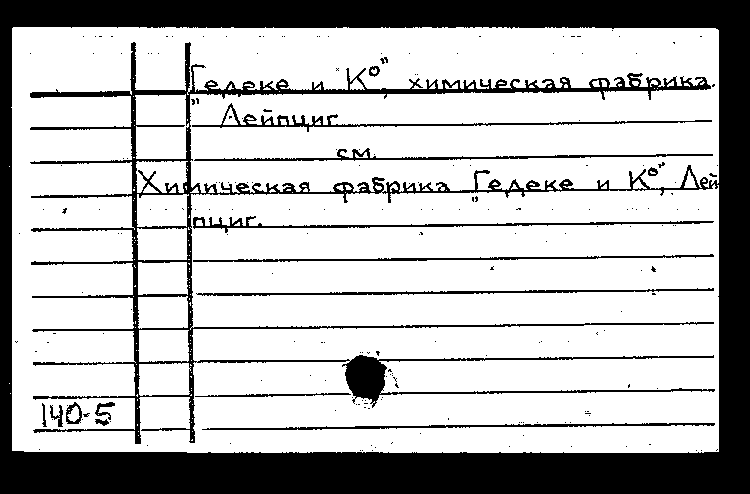 „Гедеке и К⁰”, химическая фабрика.
Лейпциг
см.
Химическая фабрика „Гедеке и К⁰”, Лей
пциг.
140-5